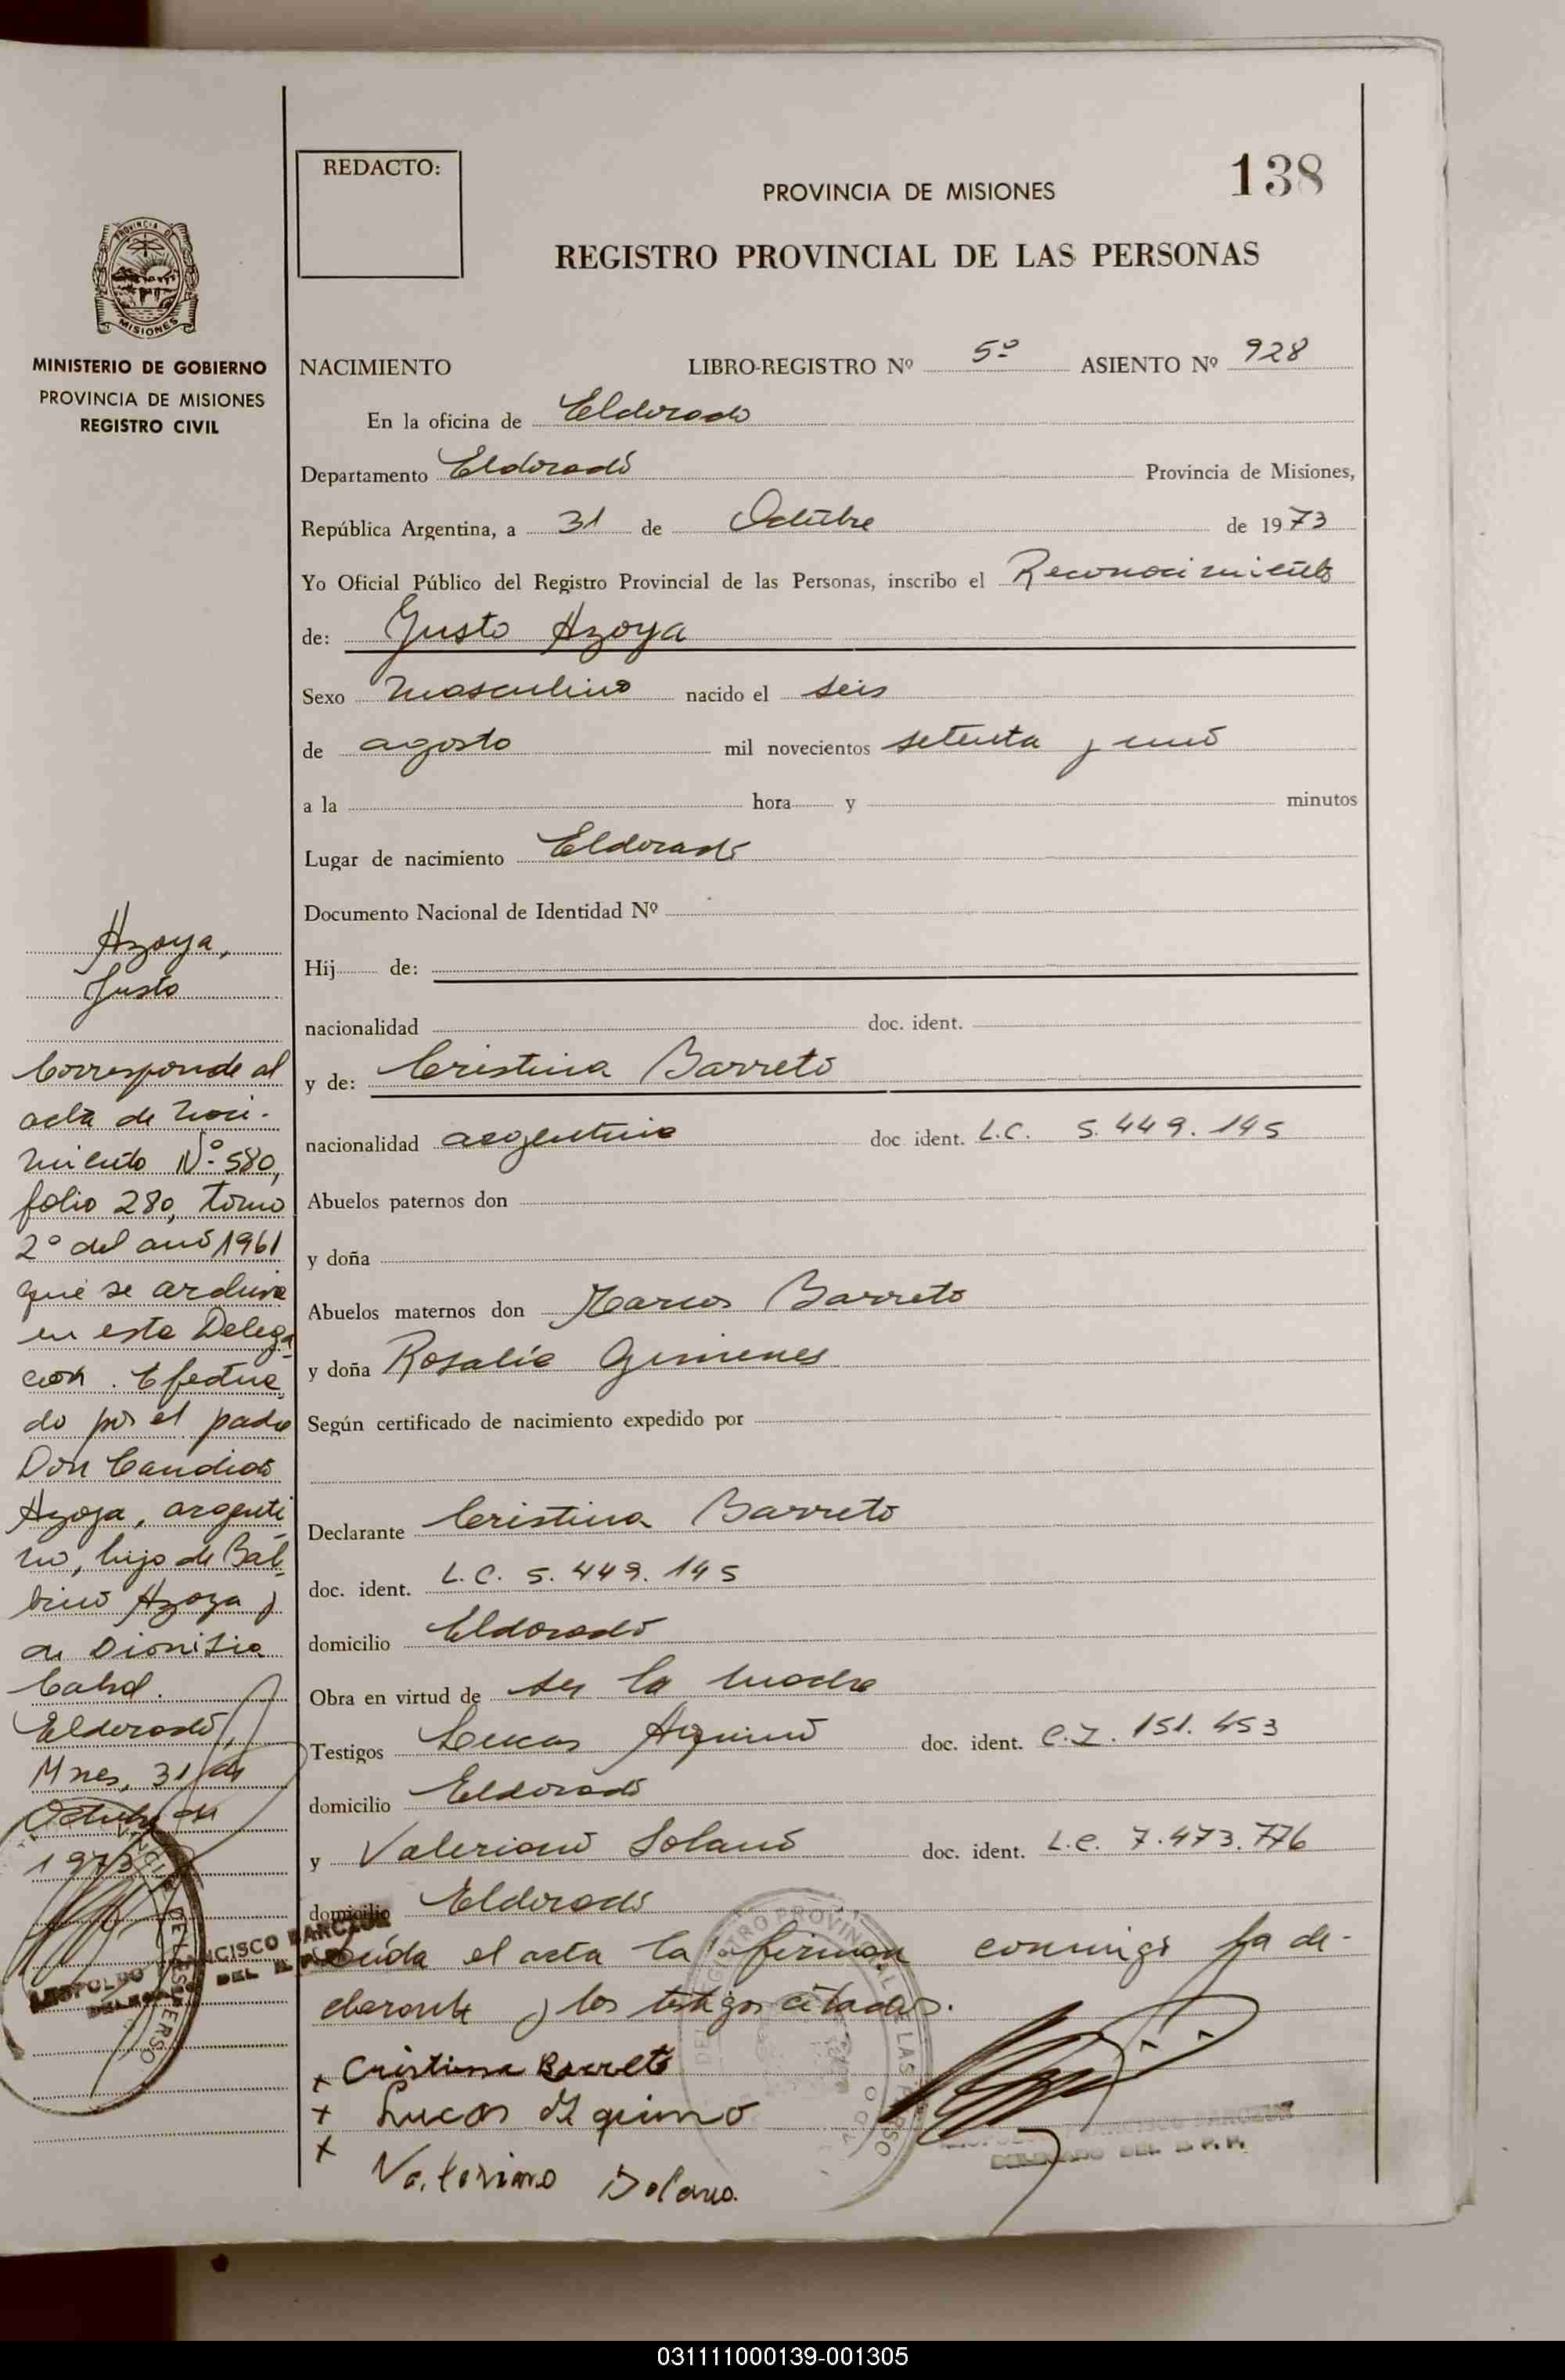 138
REDACTO:
PROVINCIA DE MISIONES
REGISTRO PROVINCIAL DE LAS PERSONAS
PROVINCIA DE
MISIONES
MINISTERIO DE GOBIERNO
PROVINCIA DE MISIONES
REGISTRO CIVIL
NACIMIENTO LIBRO-REGISTRO Nº 5º ASIENTO Nº 928
En la oficina de Eldorado
Departamento Eldorado Provincia de Misiones,
República Argentina, a 31 de Octubre de 1973
Yo Oficial Público del Registro Provincial de las Personas, inscribo el Reconocimiento
de: Justo Azoya
Sexo masculino nacido el seis
de agosto mil novecientos setenta y uno
a la hora y minutos
Lugar de nacimiento Eldorado
Documento Nacional de Identidad Nº
Hij de:
nacionalidad doc. ident.
y de: Cristina Barreto
nacionalidad argentina doc ident. L.C. 5.449.145
Abuelos paternos don
y doña
Abuelos maternos don Marcos Barreto
y doña Rosalia Gimenes
Según certificado de nacimiento expedido por
Declarante Cristina Barreto
doc. ident. L.C. 5.449.145
domicilio Eldorado
Obra en virtud de ser la madre
Testigos Lucas Aquino doc. ident. C.I. 151.453
domicilio Eldorado
y Valeriano Solano doc. ident. L.E. 7.473.776
domicilio Eldorado
Leída el acta la firman conmigo la de-
clarante y los testigos citados.
x Cristina Barreto
x Lucas Aquino
x Valeriano Solano
DELEGADO DEL R.P.P.
Azoya,
Justo
Corresponde al
acta de naci-
miento Nº 580,
folio 280, tomo
2º del año 1961
que se archiva
en esta Delega-
ción. Efectua-
do por el padre
Don Candido
Azoya, argenti-
no, hijo de Bal-
bino Azoya y
de Dionisia
Cabral.
Eldorado,
Mnes, 31 de
Octubre de
1973
LEOPOLDO FRANCISCO BARCZUK
DELEGADO DEL R.P.P.
031111000139-001305